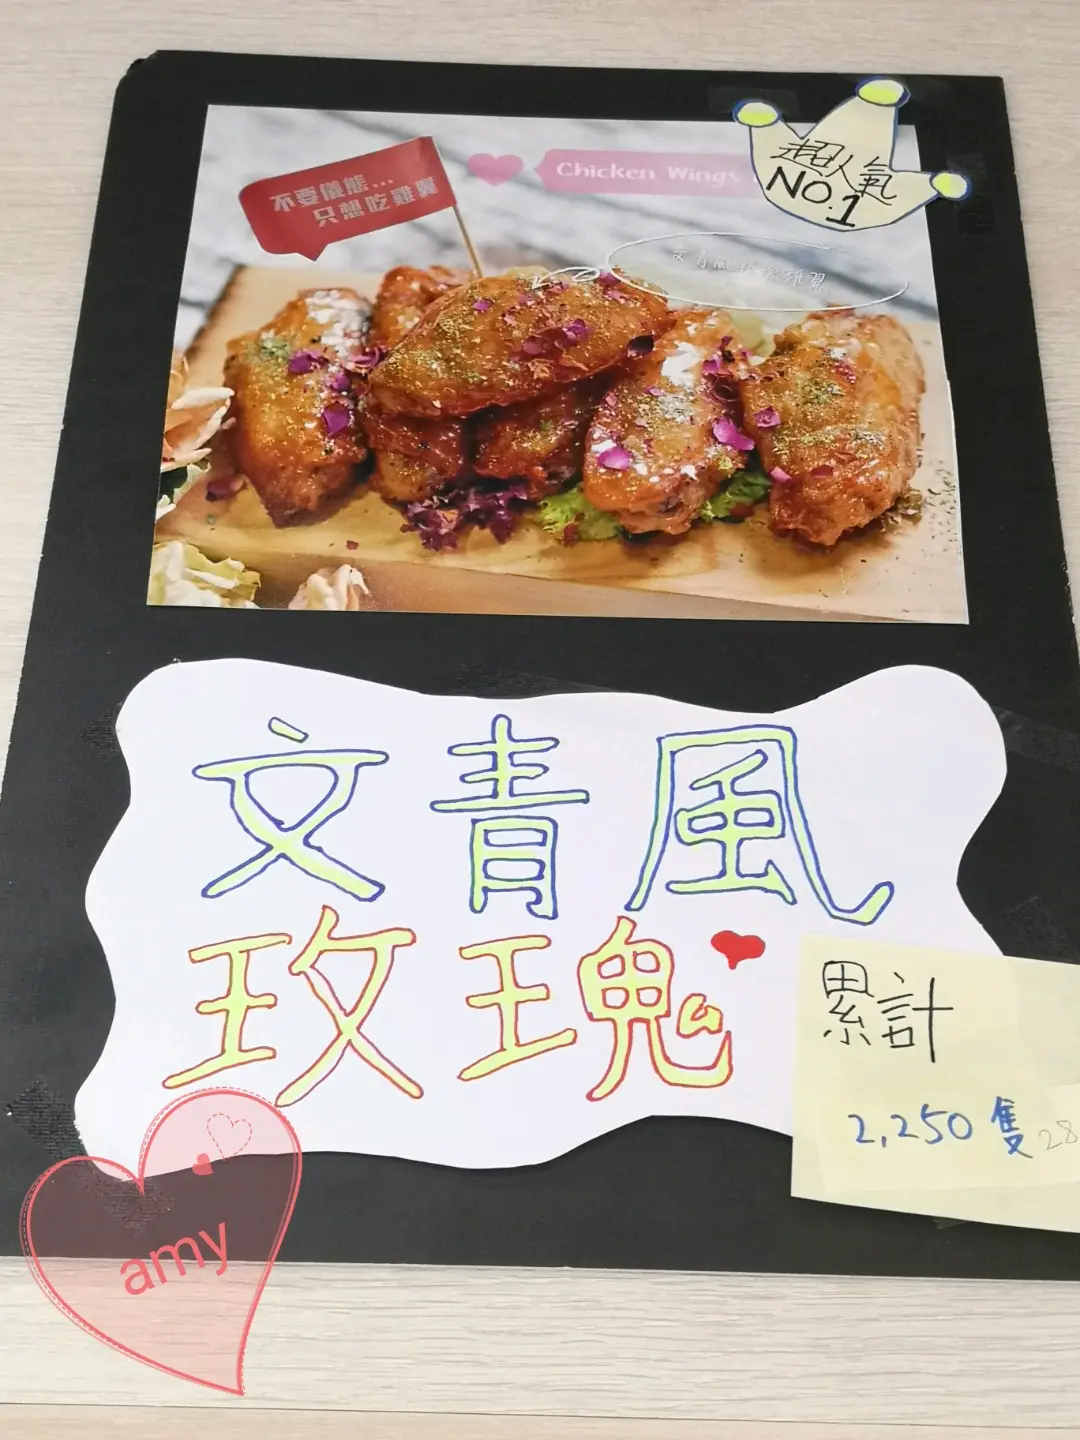 超人氣
NO.1
Chicken Wings
不要儀態...
只想吃雞翼
文青風玫瑰雞翼
文青風
玫瑰
累計
2,250 隻
28
amy